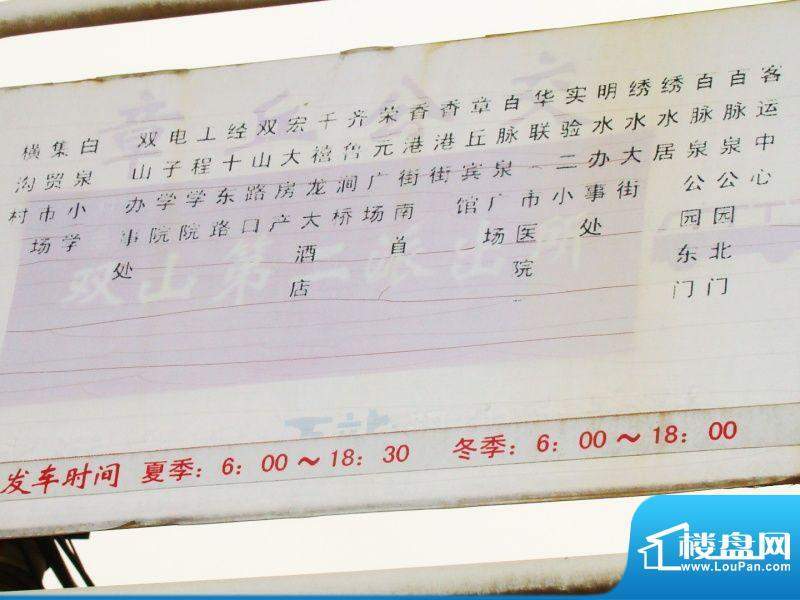 章丘公交
横沟村
集贸市场
白泉小学
双山办事处
电子学院
工程学院
经十东路
双山路口
宏大房产
千禧龙大酒店
齐鲁涧桥
荣元广场
香港街南首
香港街
章丘宾馆
百脉泉广场
华联
实验二小
明水办事处
绣水大街
绣水居
百脉泉公园东门
百脉泉公园北门
客运中心
双山第二派出所
发车时间 夏季：6：00～18：30 冬季：6：00～18：00
楼盘网
www.LouPan.com